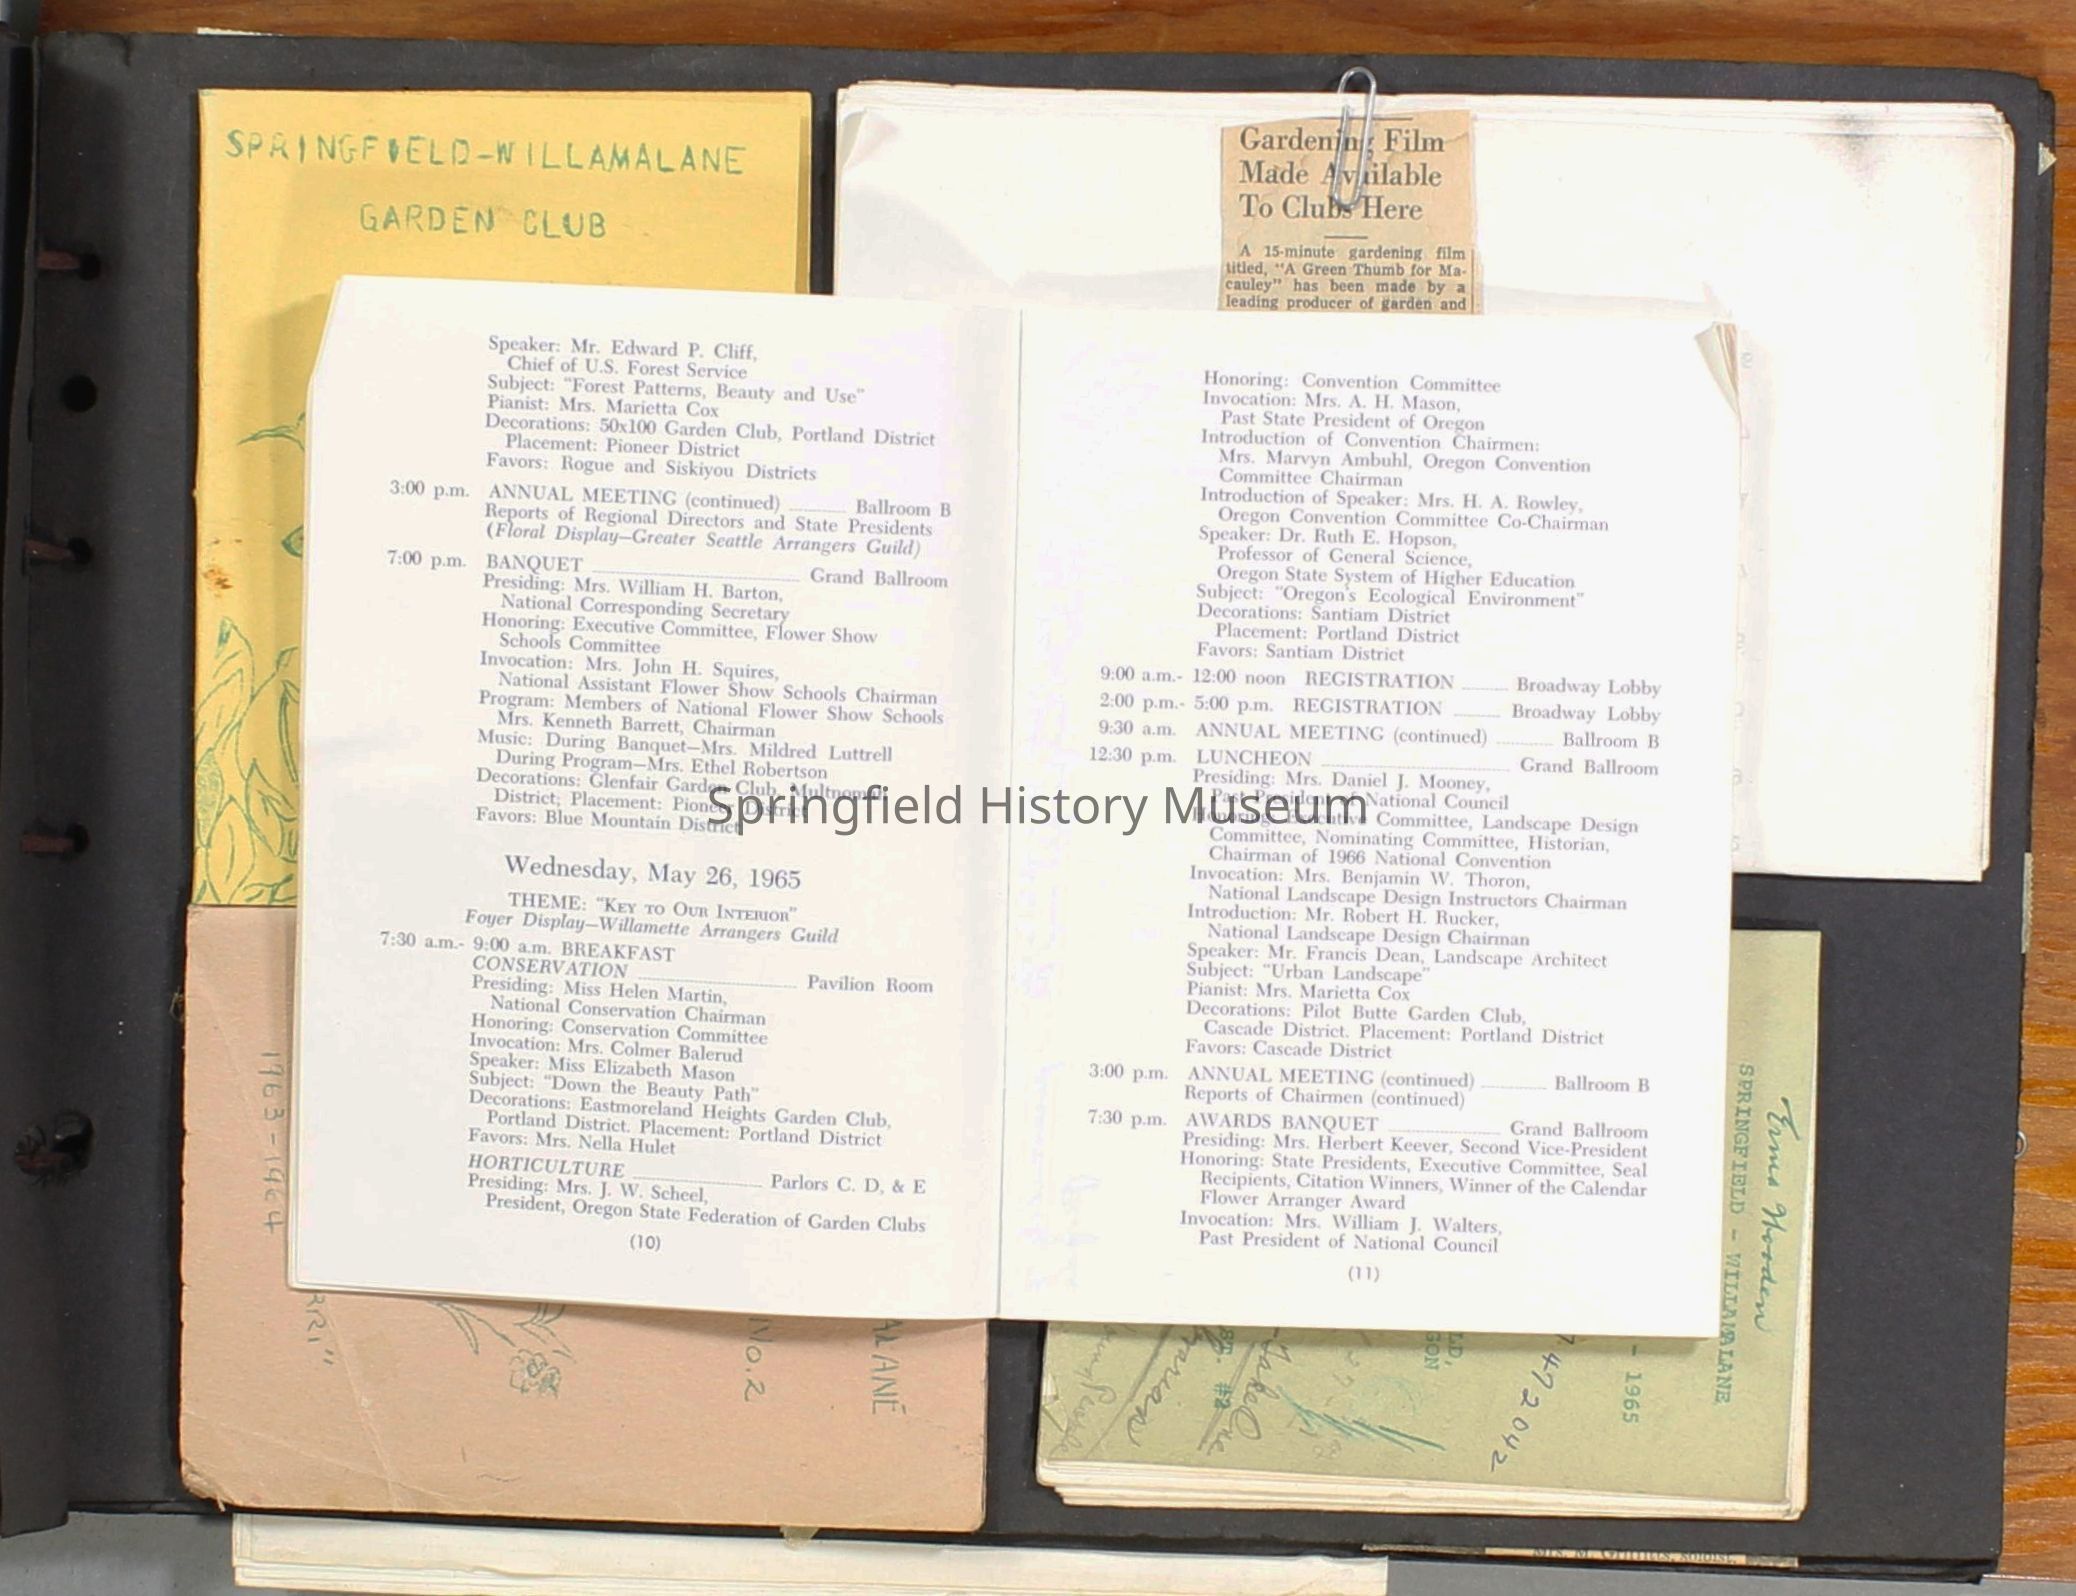 SPRINGFIELD-WILLAMALANE
GARDEN CLUB
Gardening Film
Made Available
To Clubs Here
A 15-minute gardening film
titled, "A Green Thumb for Ma-
cauley" has been made by a
leading producer of garden and
Speaker: Mr. Edward P. Cliff,
Chief of U.S. Forest Service
Subject: "Forest Patterns, Beauty and Use"
Pianist: Mrs. Marietta Cox
Decorations: 50x100 Garden Club, Portland District
Placement: Pioneer District
Favors: Rogue and Siskiyou Districts
3:00 p.m. ANNUAL MEETING (continued) ........ Ballroom B
Reports of Regional Directors and State Presidents
(Floral Display—Greater Seattle Arrangers Guild)
7:00 p.m. BANQUET ........ Grand Ballroom
Presiding: Mrs. William H. Barton,
National Corresponding Secretary
Honoring: Executive Committee, Flower Show
Schools Committee
Invocation: Mrs. John H. Squires,
National Assistant Flower Show Schools Chairman
Program: Members of National Flower Show Schools
Mrs. Kenneth Barrett, Chairman
Music: During Banquet—Mrs. Mildred Luttrell
During Program—Mrs. Ethel Robertson
Decorations: Glenfair Garden Club, Multnomah
District; Placement: Pioneer District
Favors: Blue Mountain District
Wednesday, May 26, 1965
THEME: "KEY TO OUR INTERIOR"
Foyer Display—Willamette Arrangers Guild
7:30 a.m.- 9:00 a.m. BREAKFAST
CONSERVATION ........ Pavilion Room
Presiding: Miss Helen Martin,
National Conservation Chairman
Honoring: Conservation Committee
Invocation: Mrs. Colmer Balerud
Speaker: Miss Elizabeth Mason
Subject: "Down the Beauty Path"
Decorations: Eastmoreland Heights Garden Club,
Portland District. Placement: Portland District
Favors: Mrs. Nella Hulet
HORTICULTURE ........ Parlors C. D, & E
Presiding: Mrs. J. W. Scheel,
President, Oregon State Federation of Garden Clubs
(10)
Honoring: Convention Committee
Invocation: Mrs. A. H. Mason,
Past State President of Oregon
Introduction of Convention Chairmen:
Mrs. Marvyn Ambuhl, Oregon Convention
Committee Chairman
Introduction of Speaker: Mrs. H. A. Rowley,
Oregon Convention Committee Co-Chairman
Speaker: Dr. Ruth E. Hopson,
Professor of General Science,
Oregon State System of Higher Education
Subject: "Oregon's Ecological Environment"
Decorations: Santiam District
Placement: Portland District
Favors: Santiam District
9:00 a.m.- 12:00 noon REGISTRATION ........ Broadway Lobby
2:00 p.m.- 5:00 p.m. REGISTRATION ........ Broadway Lobby
9:30 a.m. ANNUAL MEETING (continued) ........ Ballroom B
12:30 p.m. LUNCHEON ........ Grand Ballroom
Presiding: Mrs. Daniel J. Mooney,
Past President of National Council
Honoring: Executive Committee, Landscape Design
Committee, Nominating Committee, Historian,
Chairman of 1966 National Convention
Invocation: Mrs. Benjamin W. Thoron,
National Landscape Design Instructors Chairman
Introduction: Mr. Robert H. Rucker,
National Landscape Design Chairman
Speaker: Mr. Francis Dean, Landscape Architect
Subject: "Urban Landscape"
Pianist: Mrs. Marietta Cox
Decorations: Pilot Butte Garden Club,
Cascade District. Placement: Portland District
Favors: Cascade District
3:00 p.m. ANNUAL MEETING (continued) ........ Ballroom B
Reports of Chairmen (continued)
7:30 p.m. AWARDS BANQUET ........ Grand Ballroom
Presiding: Mrs. Herbert Keever, Second Vice-President
Honoring: State Presidents, Executive Committee, Seal
Recipients, Citation Winners, Winner of the Calendar
Flower Arranger Award
Invocation: Mrs. William J. Walters,
Past President of National Council
(11)
Springfield History Museum
1963-1964
NO.2
ALANE
Erma Wooden
SPRINGFIELD - WILLAMALANE
- 1965
7472042
#2
Mrs. M. Griffitts, soloist.